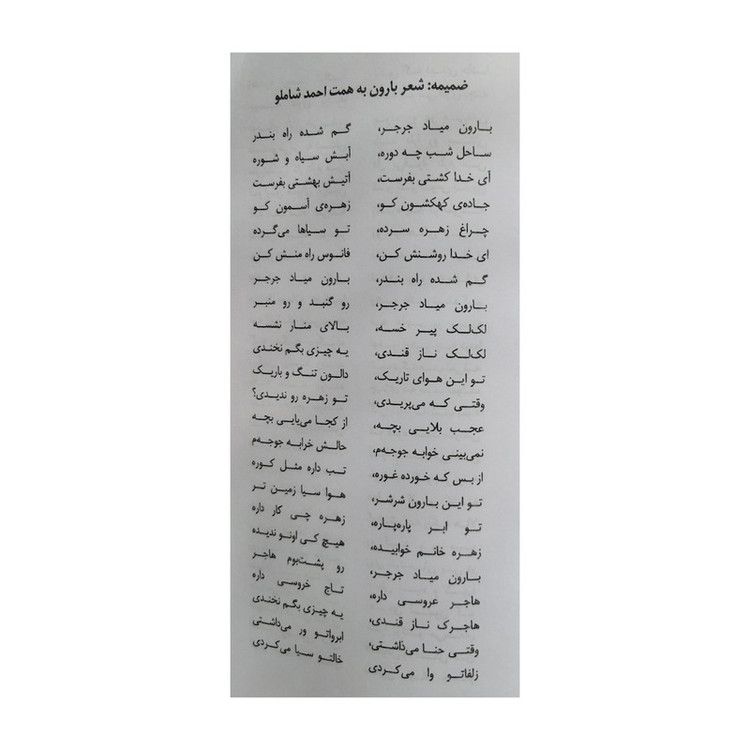 ضمیمه: شعر بارون به همت احمد شاملو
بارون میاد جرجر، گم شده راه بندر
ساحل شب چه دوره، آبش سیاه و شوره
آی خدا کشتی بفرست، آتیش بهشتی بفرست
جاده‌ی کهکشون کو، زهره‌ی آسمون کو
چراغ زهره سرده، تو سیاها می‌گرده
ای خدا روشنش کن، فانوس راه منش کن
گم شده راه بندر، بارون میاد جرجر
بارون میاد جرجر، رو گنبد و رو منبر
لک‌لک پیر خسه، بالای منار نشسه
لک‌لک ناز قندی، یه چیزی بگم نخندی
تو این هوای تاریک، دالون تنگ و باریک
وقتی که می‌پریدی، تو زهره رو ندیدی؟
عجب بلایی بچه، از کجا می‌یایی بچه
نمی‌بینی خوابه جوجه‌م، حالش خرابه جوجه‌م
از بس که خورده غوره، تب داره مثل کوره
تو این بارون شرشر، هوا سیا زمین تر
تو ابر پاره‌پاره، زهره چی کار داره
زهره خانم خوابیده، هیچ کی اونو ندیده
بارون میاد جرجر، رو پشت‌بوم هاجر
هاجر عروسی داره، تاج خروسی داره
هاجرک ناز قندی، یه چیزی بگم نخندی
وقتی حنا می‌ذاشتی، ابرواتو ور می‌داشتی
زلفاتو وا می‌کردی خالتو سیا می‌کردی